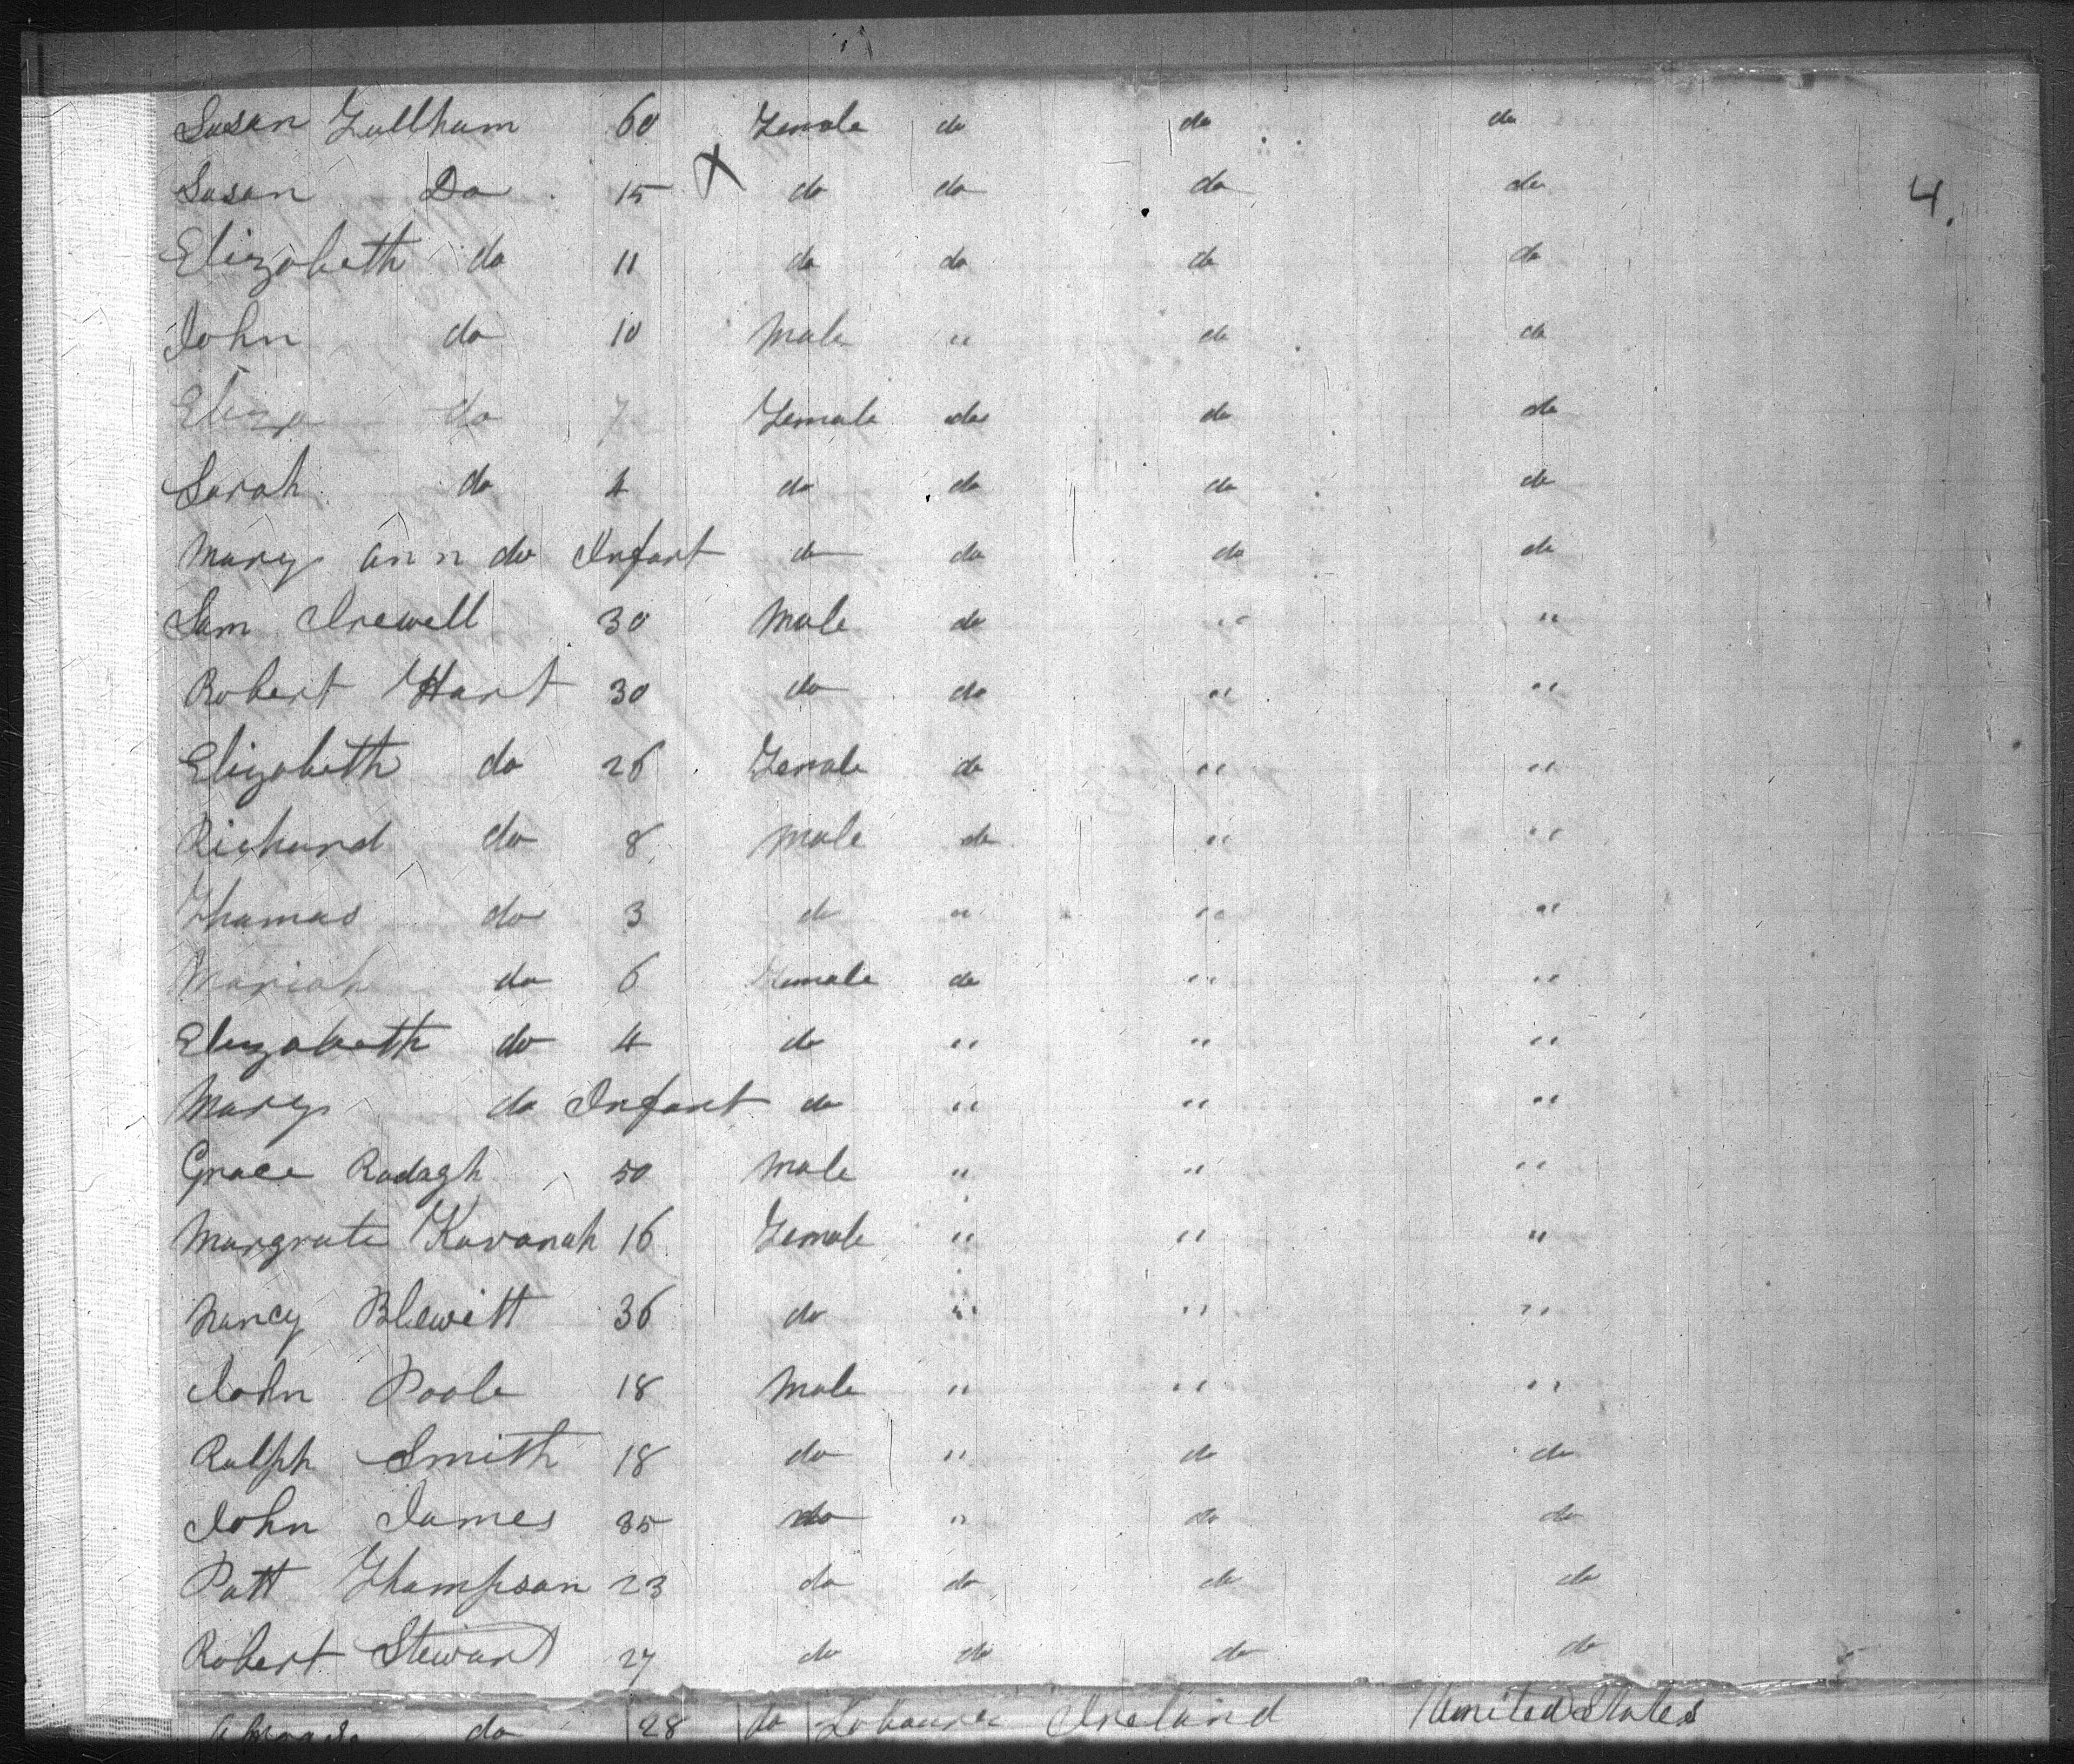 Susan Fullham 60 Female do do do
Susan Do 15 X do do do do 4.
Elizabeth do 11 do do do do
John do 10 Male " do do
Eliza do 7 Female do do do
Sarah do 4 do do do do
Mary ann do Infant do do do do
Sam Irewell 30 Male do " "
Robert Hart 30 do do " "
Elizabeth do 26 Female do " "
Richard do 8 Male do " "
Thomas do 3 do " " "
Mariah do 6 Female do " "
Elizabeth do 4 do " " "
Mary do Infant do " " "
Grace Radagh 50 Male " " "
Margrate Kavanah 16 Female " " "
Nancy Blewitt 36 do " " "
John Poole 18 Male " " "
Ralph Smith 18 do " do do
John James 35 do " do do
Patt Thompson 23 do do do do
Robert Stewart 27 do do do do
do 28 do Labourer Ireland United States